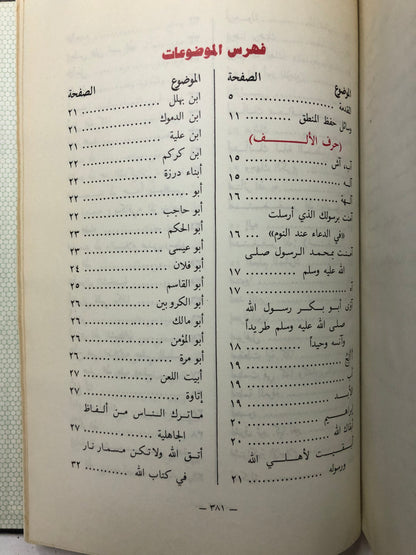 فهرس الموضوعات
الموضوع الصفحة
المقدمة ............ ٥
وسائل حفظ المنطق ............ ١١
(حرف الألــــف)
آب، آش ............ ١٥
آسه ............ ١٥
آلهة ............ ١٦
آمنت برسولك الذي أرسلت
«في الدعاء عند النوم» ... ١٦
آمنت بمحمد الرسول صلى
الله عليه وسلم ............ ١٧
آه ............ ١٧
آوى أبو بكر رسول الله
صلى الله عليه وسلم طريداً
وآنسه وحيداً ............ ١٨
............ ١٩
أب ............ ١٩
الأبد ............ ١٩
إبراهيم ............ ٢٠
أبقاك الله ............ ٢٠
أبقيت لأهلي الله
ورسوله ............ ٢١
الموضوع الصفحة
ابن بهلل ............ ٢١
ابن الدموك ............ ٢١
ابن علية ............ ٢١
ابن كركم ............ ٢٢
أبناء درزة ............ ٢٢
أبو ............ ٢٢
أبو حاجب ............ ٢٢
أبو الحكم ............ ٢٣
أبو عيسى ............ ٢٣
أبو فلان ............ ٢٤
أبو القاسم ............ ٢٥
أبو الكروبين ............ ٢٦
أبو مالك ............ ٢٦
أبو المؤمن ............ ٢٦
أبو مرة ............ ٢٦
أبيت اللعن ............ ٢٧
إتاوة ............ ٢٧
ما ترك الناس من ألفاظ
الجاهلية ............ ٢٧
أتق الله ولا تكن مسمار نار
في كتاب الله ............ ٣٢
— ٣٨١ —